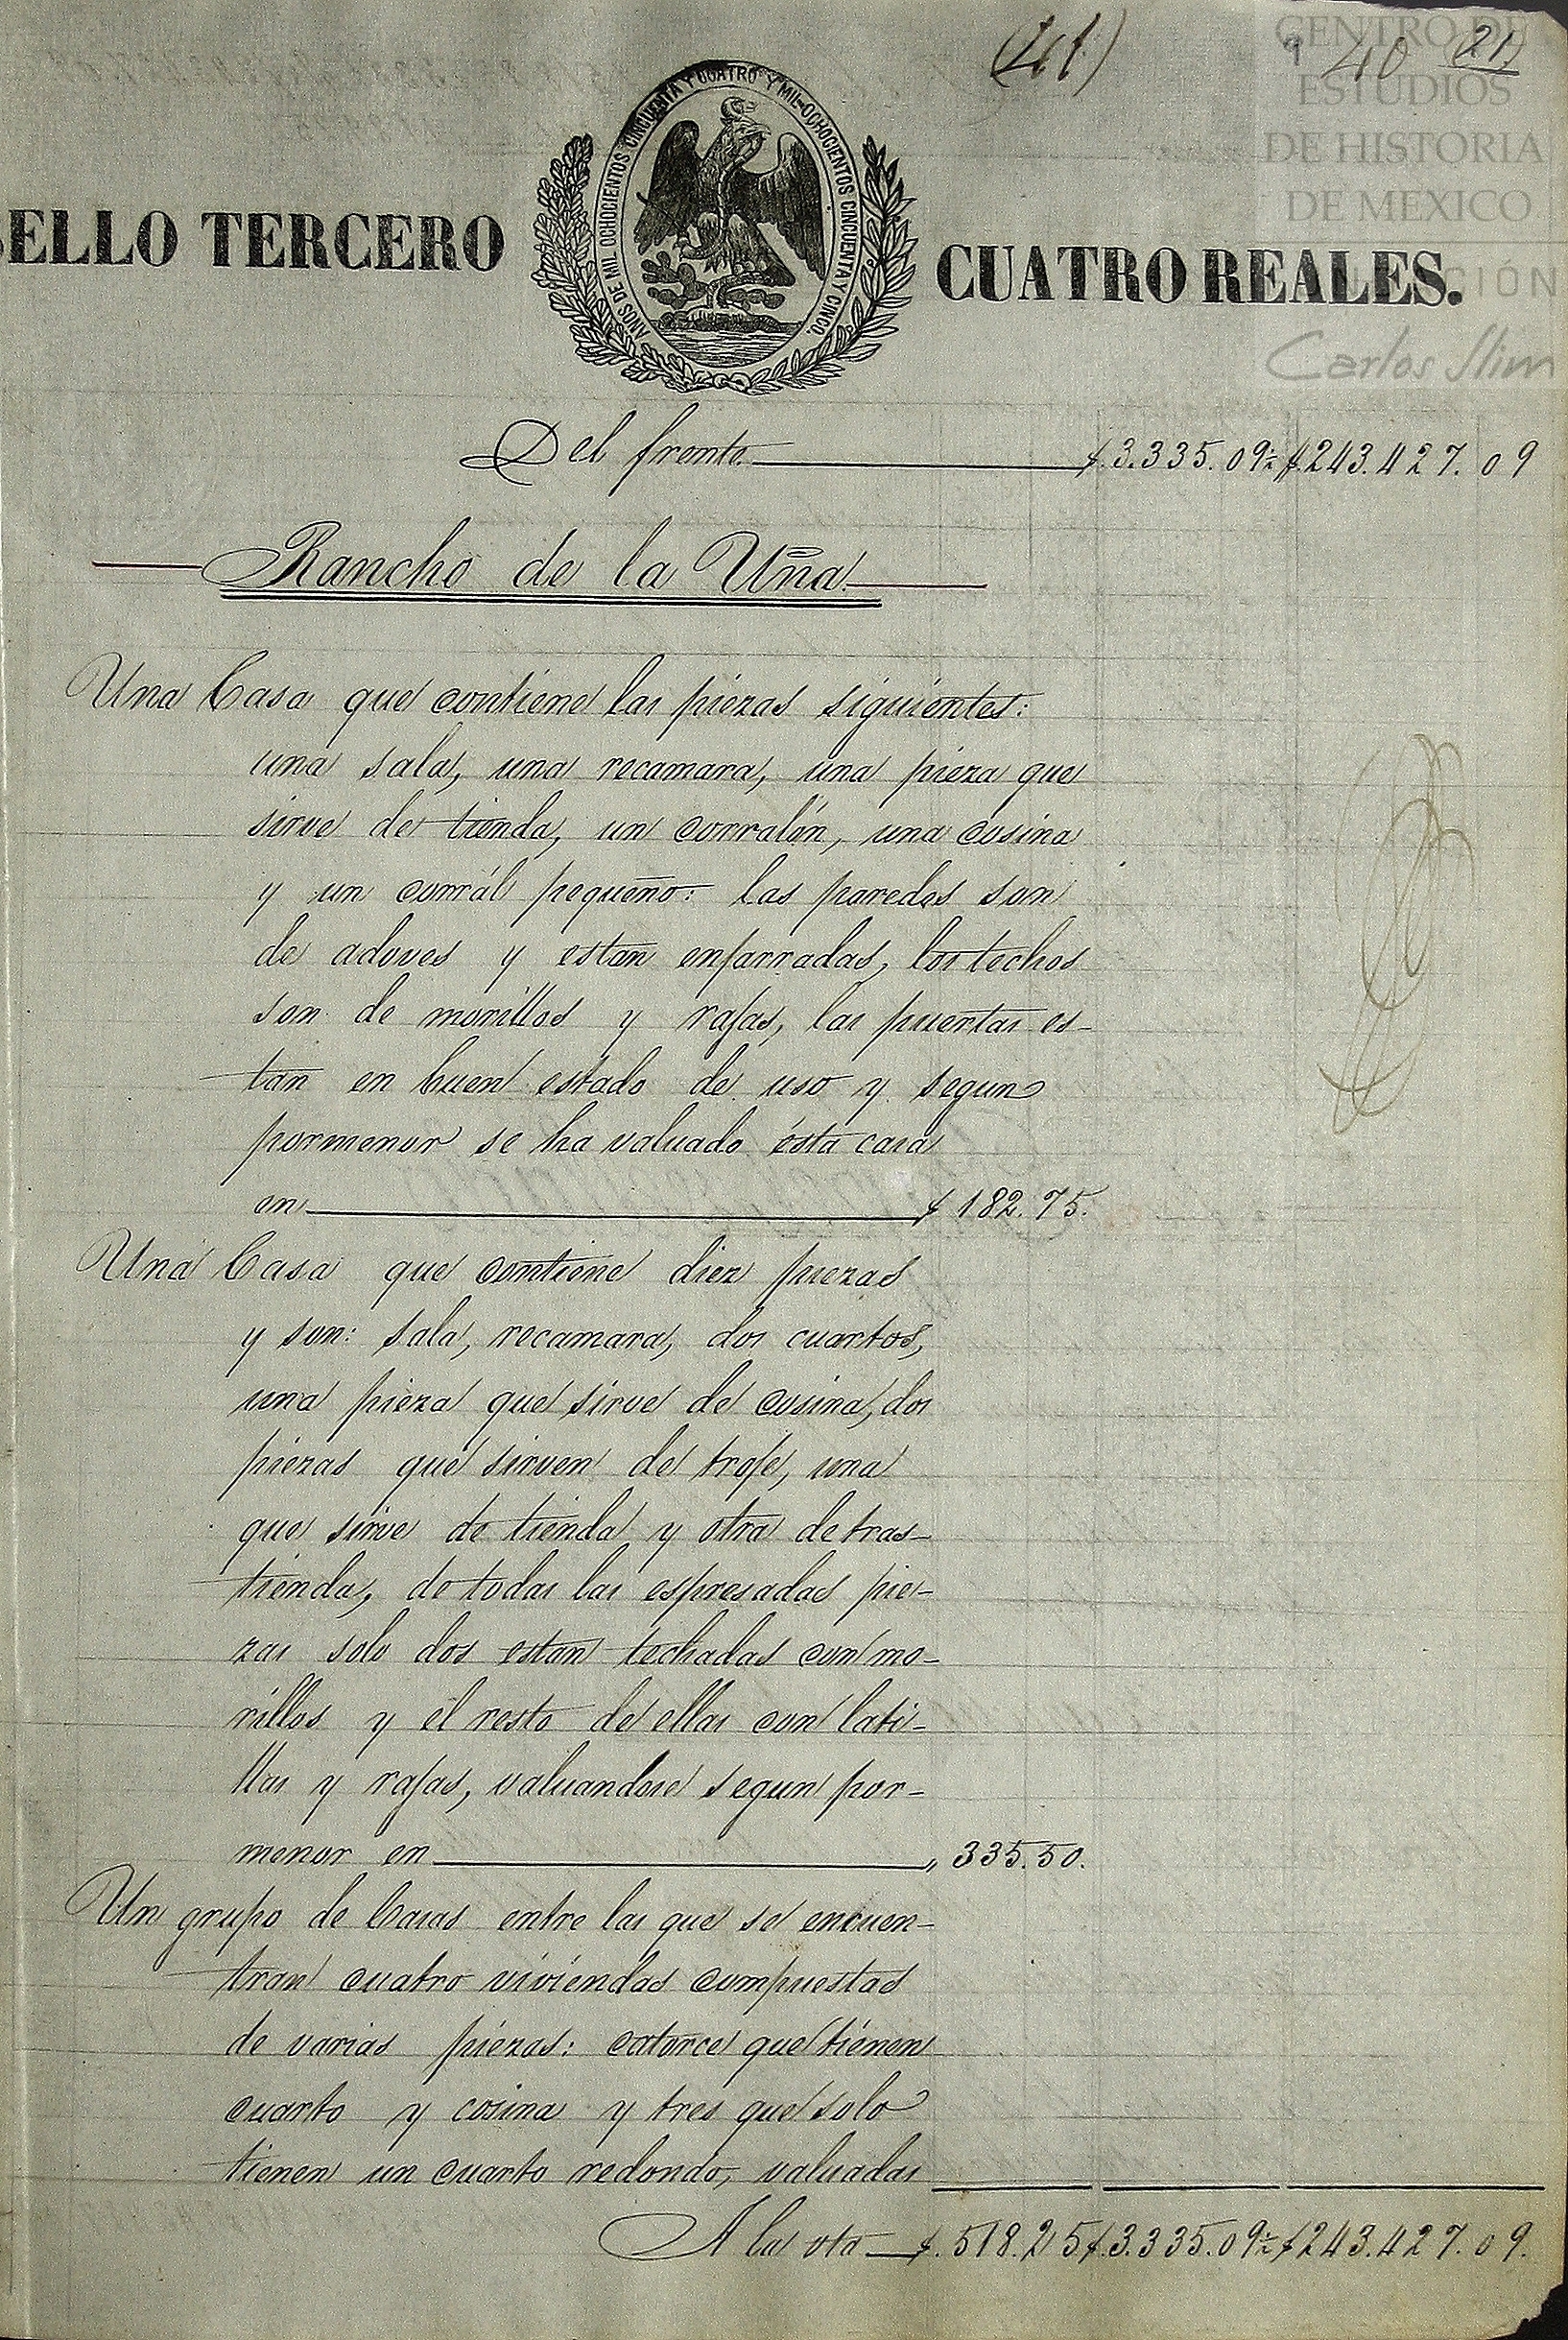 (41) 9 40 21)
CENTRO DE
ESTUDIOS
DE HISTORIA
DE MEXICO
Carlos Slim
AÑOS DE MIL OCHOCIENTOS CINCUENTA Y CUATRO Y MIL OCHOCIENTOS CINCUENTA Y CINCO.
SELLO TERCERO CUATRO REALES.
Del frente $.3.335.09½ $.243.427.09
Rancho de la Uña.
Una Casa que contiene las piezas siguientes:
una sala, una recamara, una pieza que
sirve de tienda, un corralón, una cosina
y un corrál pequeño: las paredes son
de adoves y estan enjarradas, los techos
son de morillos y rajas, las puertas es-
tan en buen estado de uso y segun
pormenor se ha valuado ésta casa
en $ 182.75.
Una Casa que contiene diez piezas
y son: sala, recamara, dos cuartos,
una pieza que sirve de cosina, dos
piezas que sirven de troje, una
que sirve de tienda y otra de tras-
tienda, de todas las espresadas pie-
zas solo dos estan techadas con mo-
rillos y el resto de ellas con lati-
llas y rajas, valuandose segun por-
menor en „ 335.50.
Un grupo de Casas entre las que se encuen-
tran cuatro viviendas compuestas
de varias piezas: catorce que tienen
cuarto y cosina y tres que solo
tienen un cuarto redondo, valuadas
A la vta $.518.25 $.3.335.09½ $243.427.09.